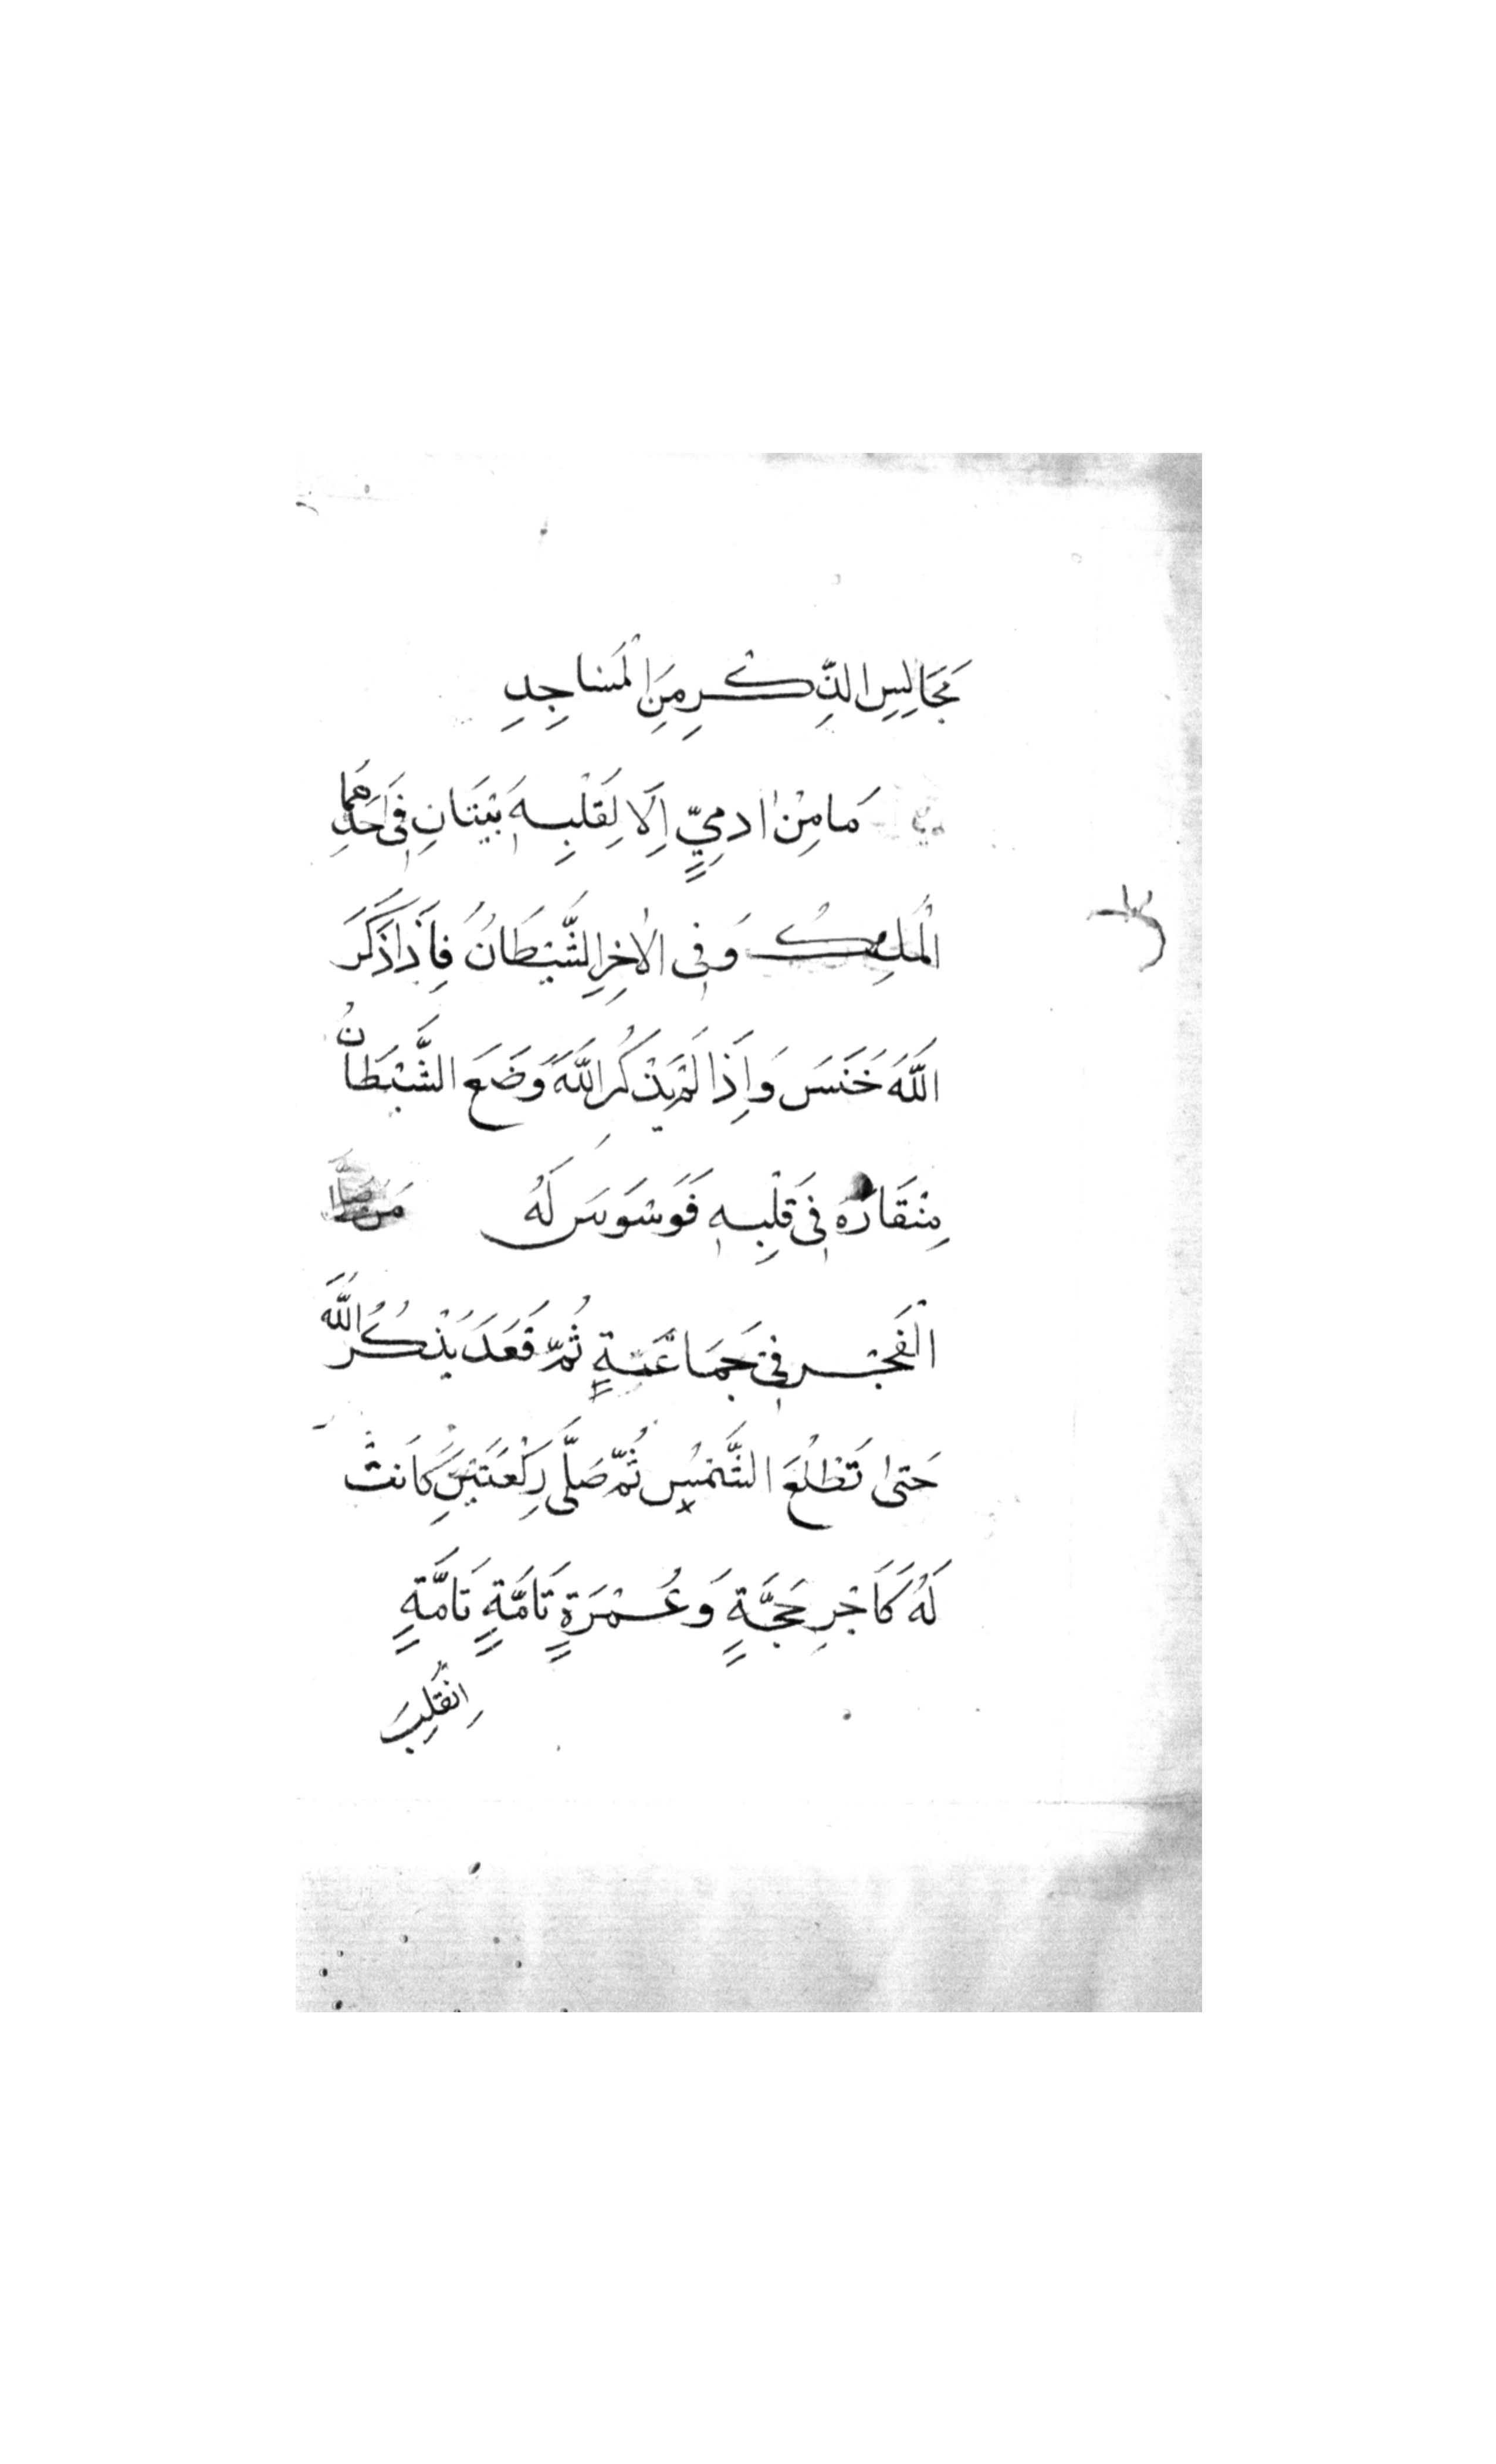 مَجَالِسِ الذِّكْرِ مِنَ الْمَسَاجِدِ
مَا مِنْ اٰدَمِيٍّ اِلَّا لِقَلْبِهٖ بَيْتَانِ فِىٓ اَحَدِهِمَا
الْمَلَكُ وَفِى الْاٰخِرِ الشَّيْطَانُ فَاِذَا ذَكَرَ
اللّٰهَ خَنَسَ وَاِذَا لَمْ يَذْكُرِ اللّٰهَ وَضَعَ الشَّيْطَانُ
مِنْقَارَهُ فِى قَلْبِهٖ فَوَسْوَسَ لَهُ مَنْ صَلَّى
الْفَجْرَ فِى جَمَاعَةٍ ثُمَّ قَعَدَ يَذْكُرُ اللّٰهَ
حَتّٰى تَطْلُعَ الشَّمْسُ ثُمَّ صَلَّى رَكْعَتَيْنِ كَانَتْ
لَهُ كَاَجْرِ حَجَّةٍ وَعُمْرَةٍ تَامَّةٍ تَامَّةٍ
اِنْقَلَبَ